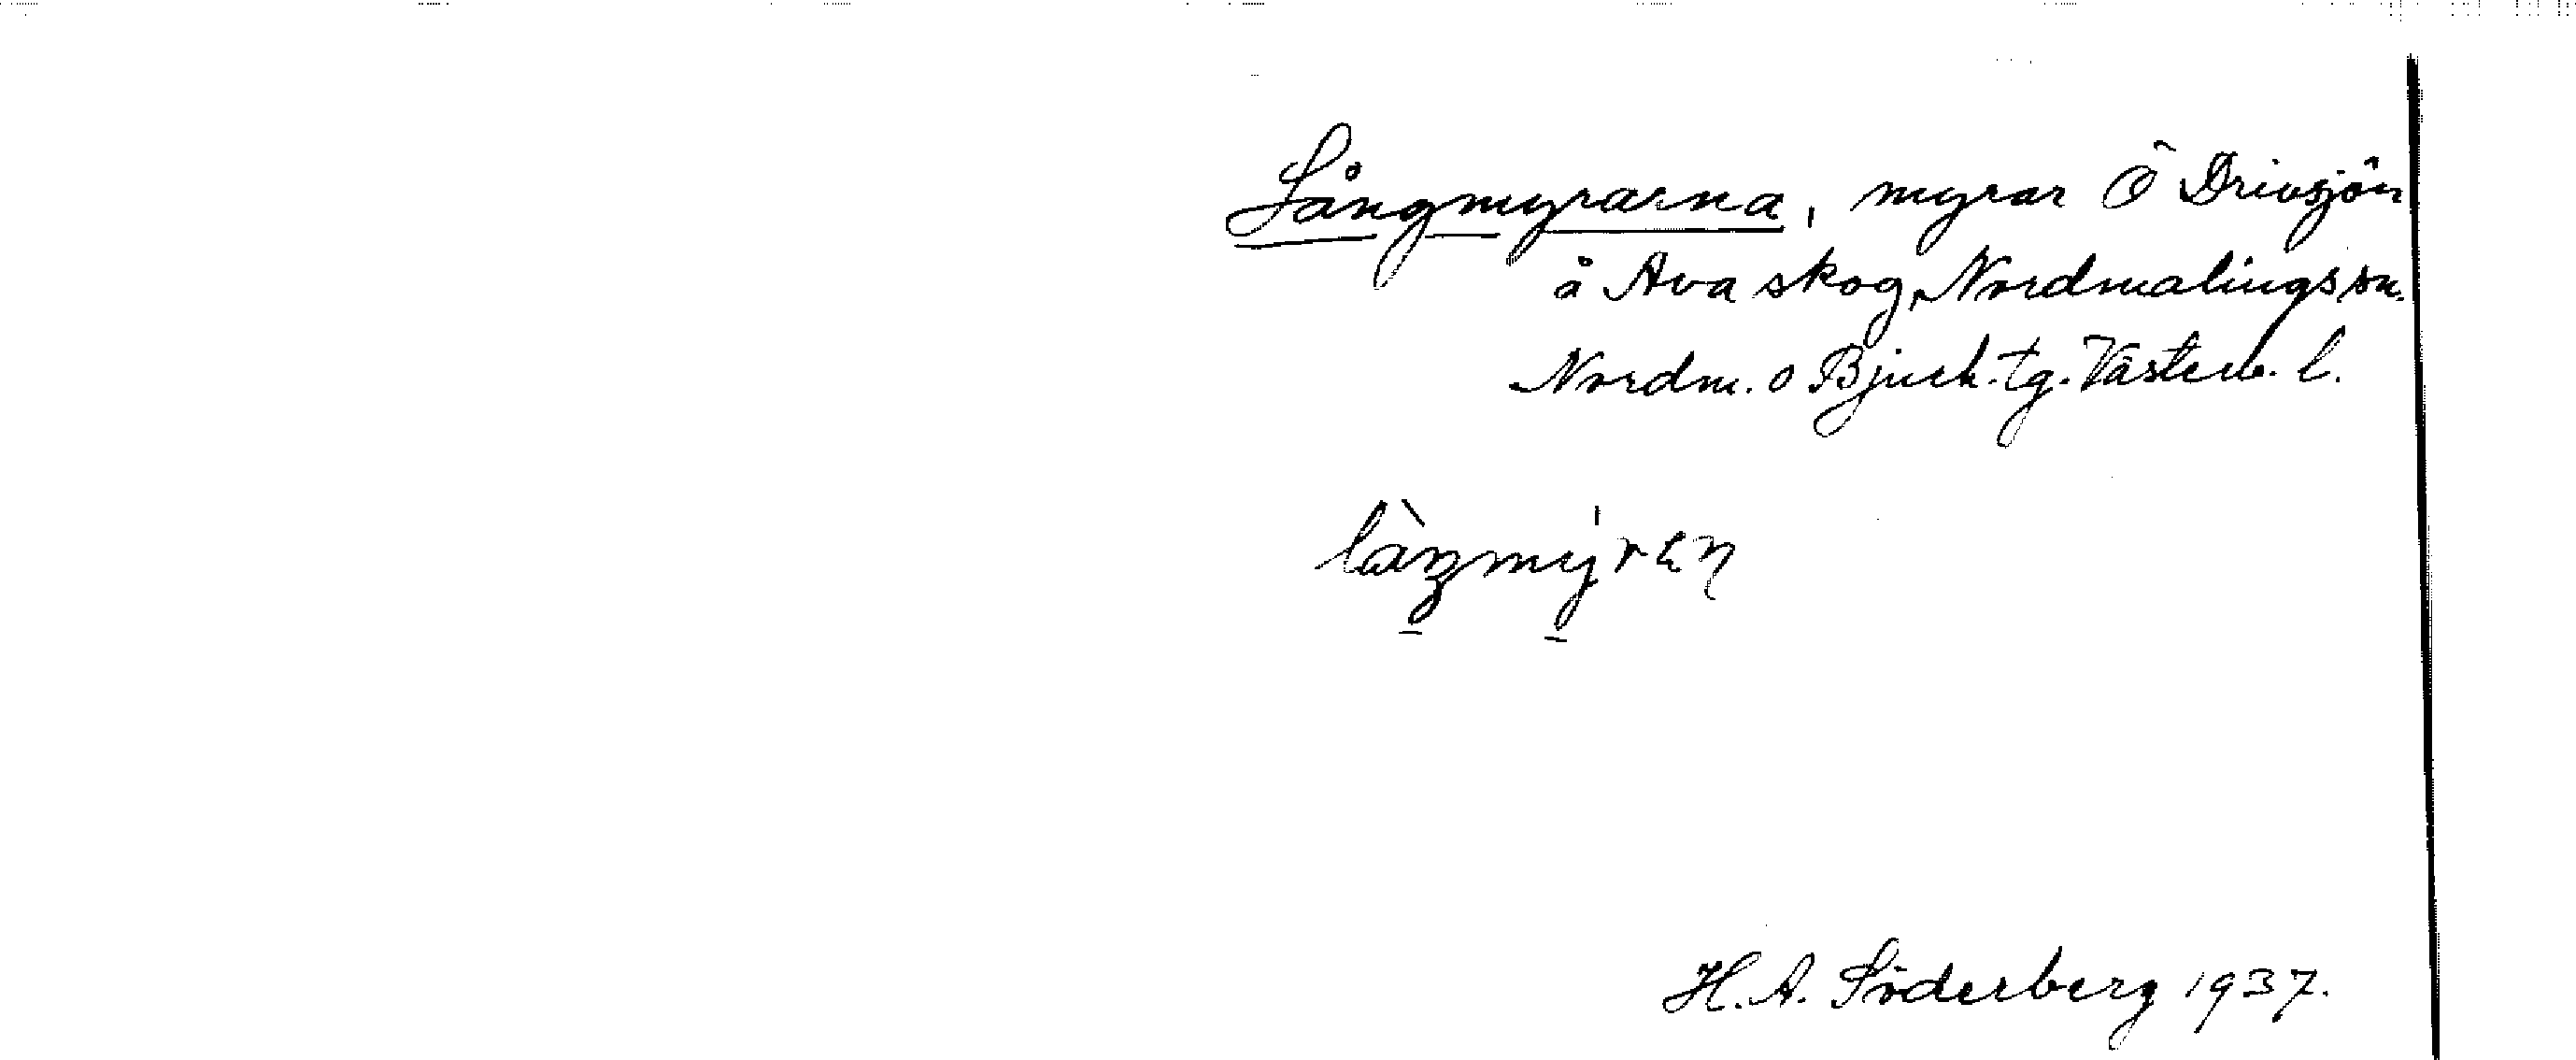 Långmyrarna, myrar Ö Drivsjön
å Ava skog, Nordmalings sn.
Nordm. o Bjurh. tg. Västerb. l.
H. A. Söderberg 1937.